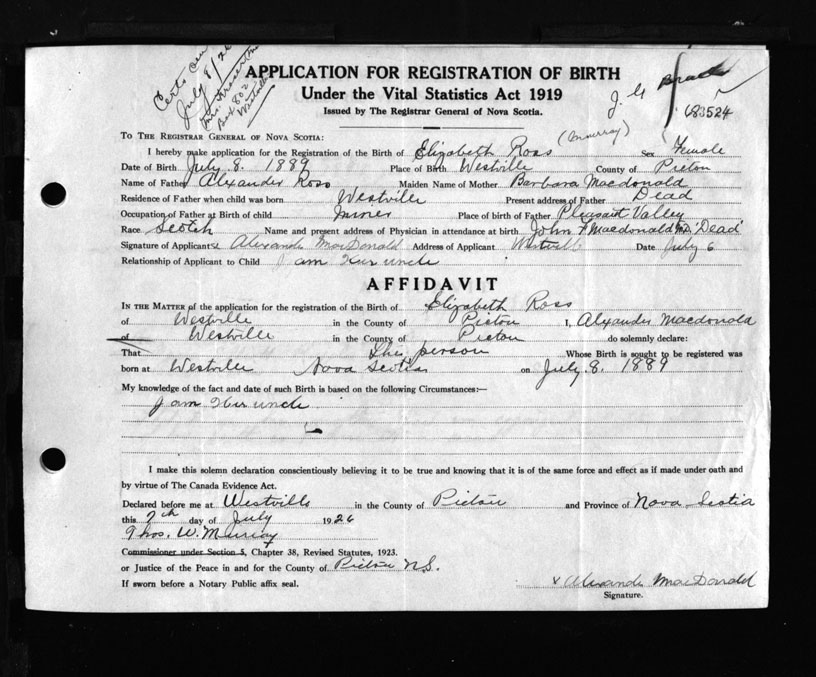 Certs sent
July 8/26
Mrs.
Box 802
Westville
J. G.
683524
APPLICATION FOR REGISTRATION OF BIRTH
Under the Vital Statistics Act 1919
Issued by The Registrar General of Nova Scotia.
To The Registrar General of Nova Scotia:
(Murray)
I hereby make application for the Registration of the Birth of Elizabeth Ross Sex Female
Date of Birth July 8. 1889 Place of Birth Westville County of Pictou
Name of Father Alexander Ross Maiden Name of Mother Barbara Macdonald
Residence of Father when child was born Westville Present address of Father Dead
Occupation of Father at Birth of child miner Place of birth of Father Pleasant Valley
Race Scotch Name and present address of Physician in attendance at birth John F Macdonald M.D. 'Dead'
Signature of Applicant x Alexande MacDonald Address of Applicant Westville Date July 6
Relationship of Applicant to Child I am Her uncle
AFFIDAVIT
In the Matter of the application for the registration of the Birth of Elizabeth Ross
of Westville in the County of Pictou I, Alexander Macdonald
of Westville in the County of Pictou do solemnly declare:
That This person Whose Birth is sought to be registered was
born at Westville Nova Scotia on July 8. 1889
My knowledge of the fact and date of such Birth is based on the following Circumstances:—
I am Her uncle
I make this solemn declaration conscientiously believing it to be true and knowing that it is of the same force and effect as if made under oath and
by virtue of The Canada Evidence Act.
Declared before me at Westville in the County of Pictou and Province of Nova Scotia
this 7th day of July 1926
Thos. W. Murray
Commissioner under Section 5, Chapter 38, Revised Statutes, 1923.
or Justice of the Peace in and for the County of Pictou N.S.
If sworn before a Notary Public affix seal.
x Alexande MacDonald
Signature.